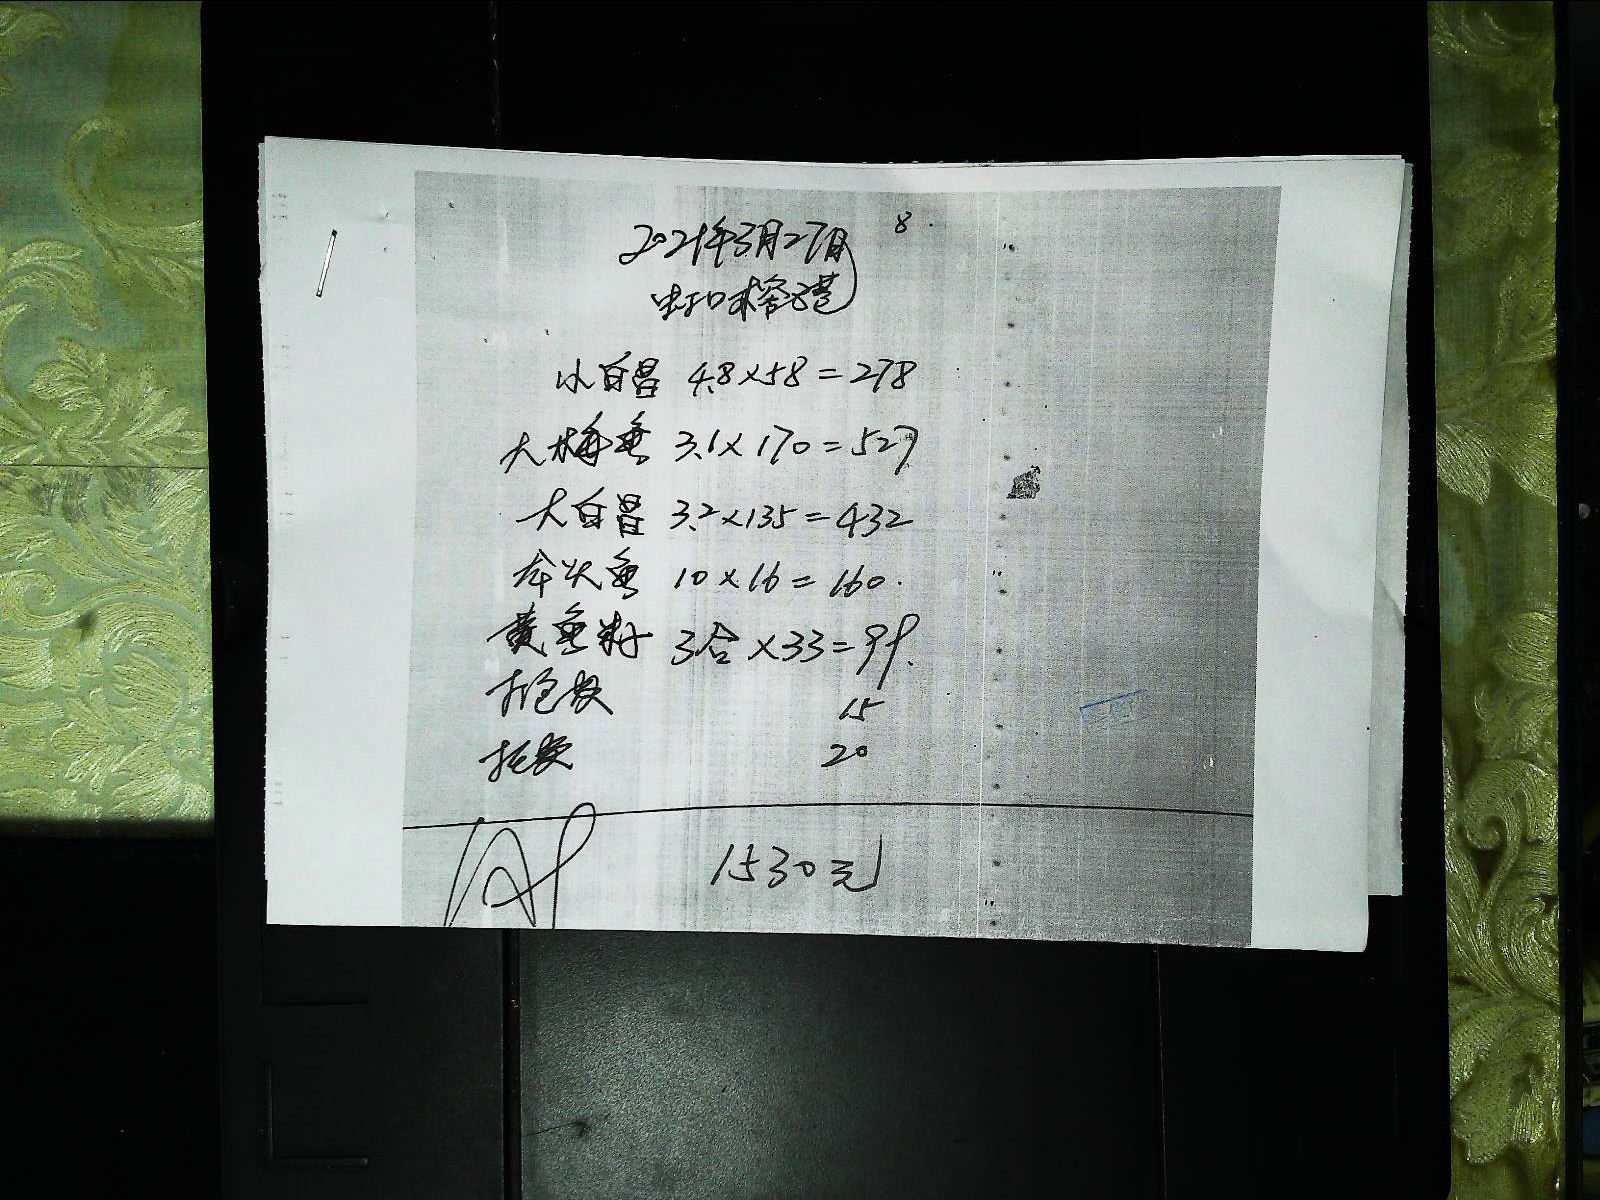 8.
2021年3月27日
虹口
小白昌 4.8×58=278
大梅鱼 3.1×170=527
大白昌 3.2×135=432
鱼 10×16=160.
黄鱼籽 3合×33=99.
打包费 15
托费 20
1530元